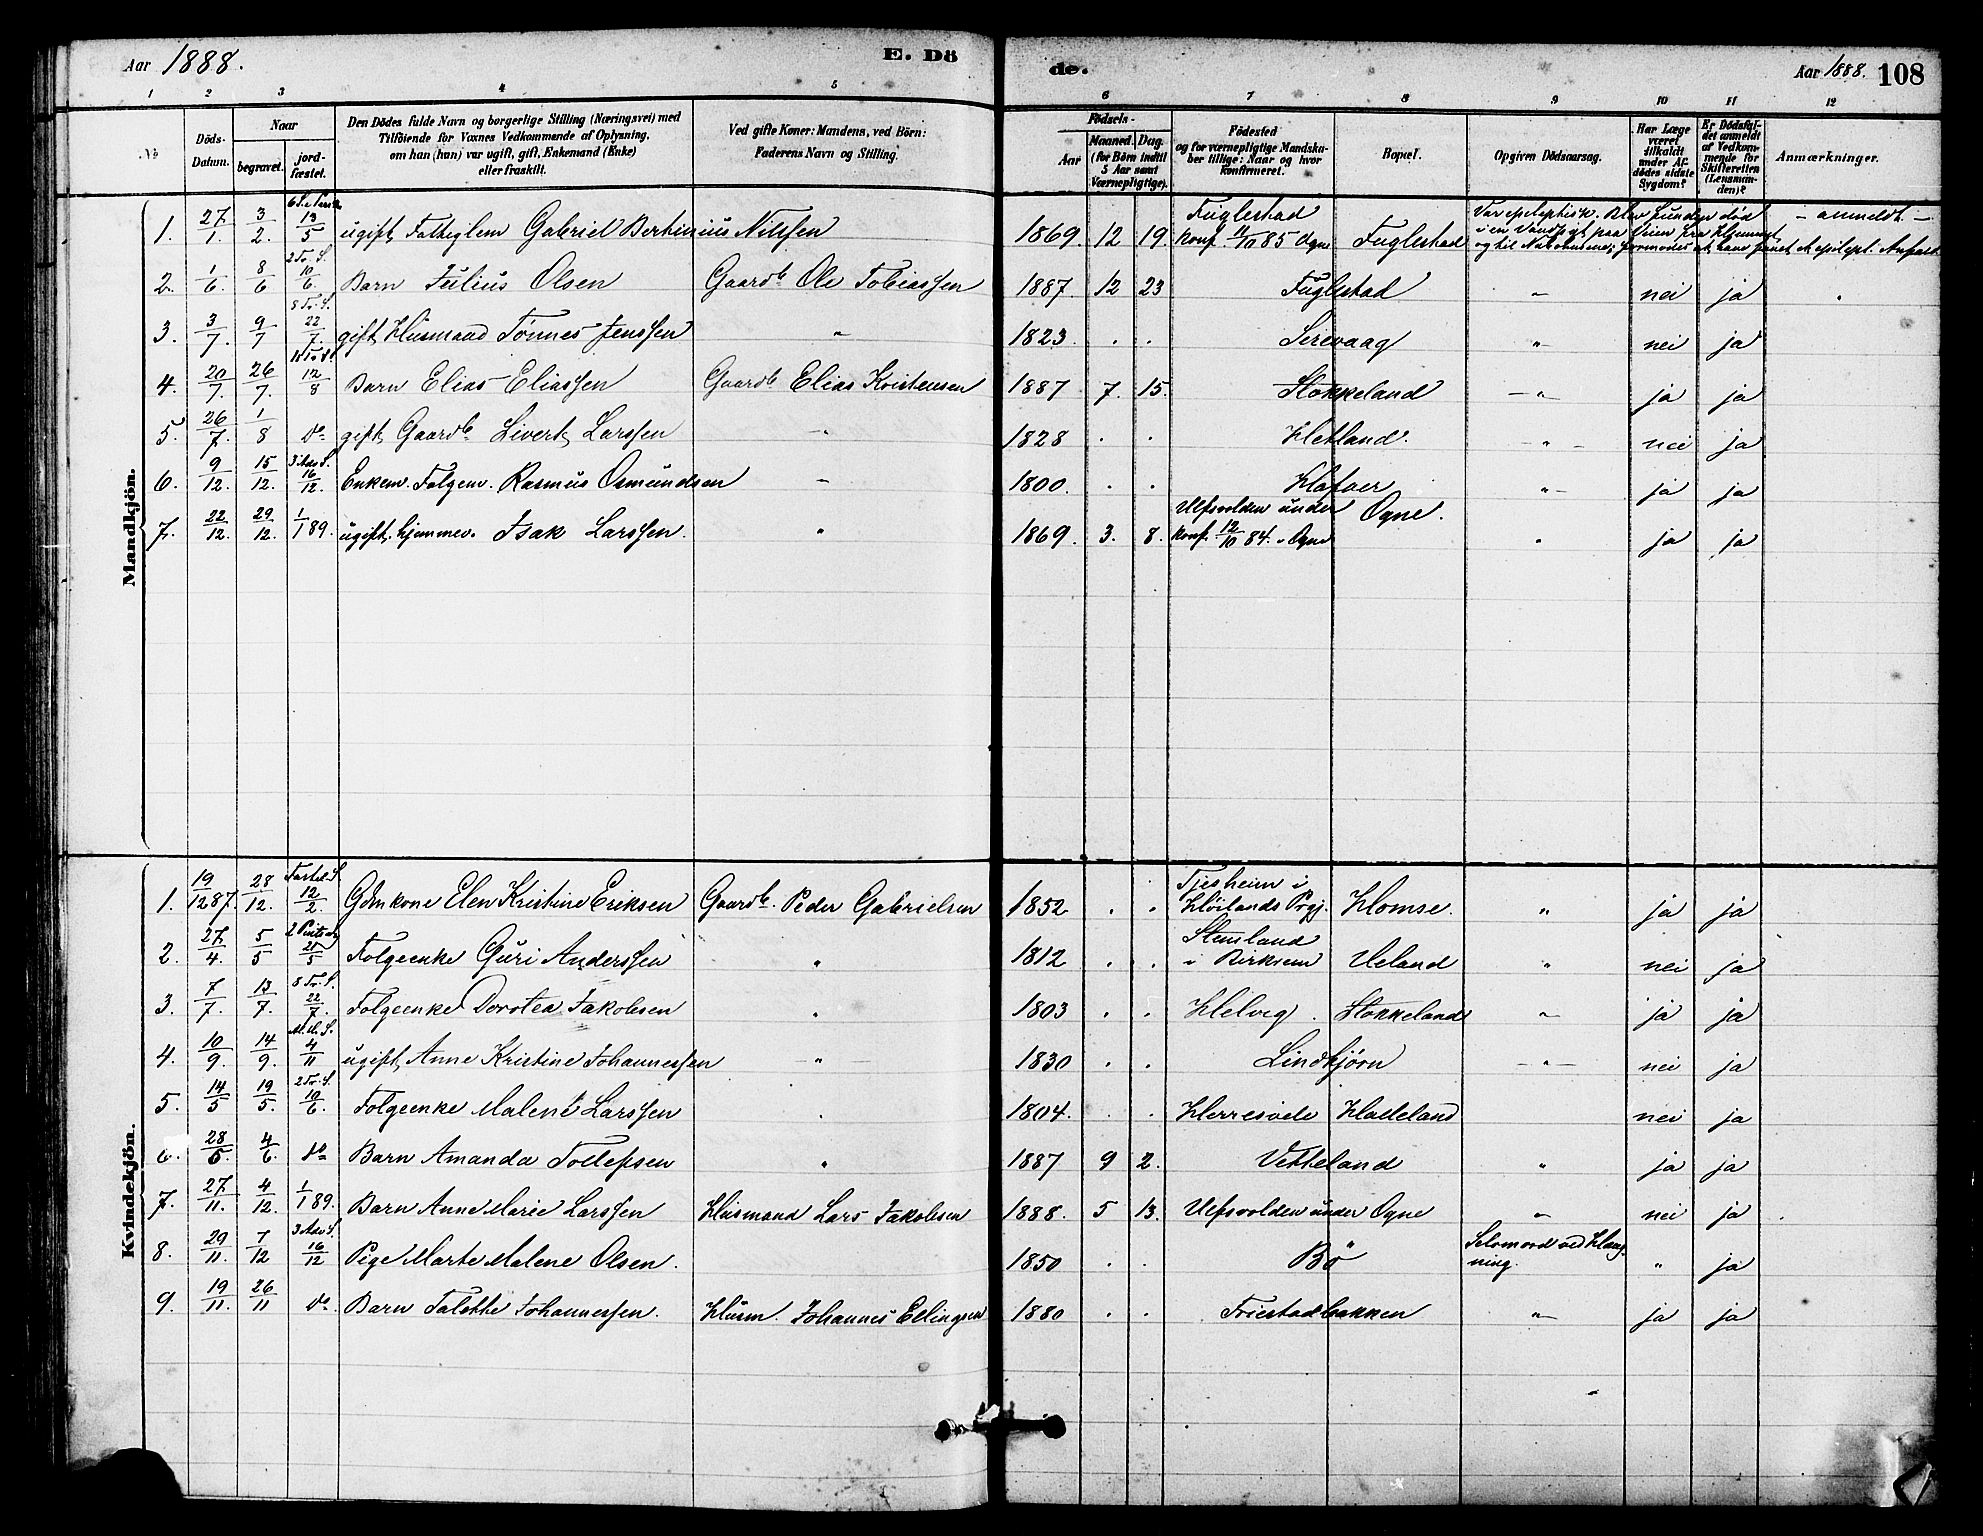 Aar 1888. E. Dö
de. Aar 1888. 108
1 2 3 4 5 6 7 8 9 10 11 12
No Döds-Datum. Naar begravet. jordfæstet. Den Dödes fulde Navn og borgerlige Stilling (Næringsvei) med Tilföiende for Voxnes Vedkommende af Oplysning, om han (hun) var ugift, gift, Enkemand (Enke) eller fraskilt. Ved gifte Koner: Mandens, ved Börn: Faderens Navn og Stilling. Födsels- Aar Maaned. Dag. (for Börn indtil 5 Aar samt Værnepligtige). Födested og for værnepligtige Mandskaber tillige: Naar og hvor konfirmeret. Bopæl. Opgiven Dödsaarsag. Har Læge været tilkaldt under Afdödes sidste Sygdom? Er Dödsfaldet anmeldt af Vedkommende for Skifteretten (Lensmanden)? Anmærkninger.
Mandkjön.
1. 27/1. 3/2. 13/5 ugift, Fattiglem Gabriel Bertinius Nilssen 1869. 12 19 Fuglestad konf. 11/10 85 Ogne Fuglestad Var epileptisk. Blev funden død i en Vandpyt paa Veien fra Hjemmet og til Nabohuset; formodes at have faaet et epilept. Anfald - anmeldt -
2. 1/6. 8/6 2 Tr. S. 10/6. Barn Julius Olsen Gaardb. Ole Tobiassen 1887. 12 23 Fuglestad " nei ja
3. 3/7. 9/7 8 Tr. S. 22/7. gift, Husmand Tønnes Jenssen " 1823 . . Sirevaag " nei ja
4. 20/7. 26/7. 12/8 Barn Elias Eliassen Gaardb. Elias Kristensen 1887 7. 15. Stokkeland " ja ja
5. 26/7. 1/8 do gift, Gaardb. Sivert Larssen " 1828 . . Hetland. " nei ja
6. 9/12. 15/12. 3 Adv. S. 16/12. Enkem. Folgem. Rasmus Osmundsen " 1800. . . Hafaer " ja ja
7. 22/12. 29/12. 1/1 89. ugift, hjemmev. Isak Larssen. " 1869. 3. 8. Ulfsvolden under konf. 12/10 84. i Ogne Ogne. " ja ja
Kvindekjön.
1. 19/12 87. 28/12. Fastel. S. 12/2. Gdmkone Elen Kristine Eriksen Gaardb. Peder Gabrielsen 1852 . . Tjesheim i Höilands Prgj. Homse. " ja ja
2. 27/4. 5/5 2 Pintsed. 20/5 Folgeenke Guri Anderssen " 1812 . . Stensland i Birkrem Ueland " nei ja
3. 7/7. 13/7. 8 Tr. S. 22/7. Folgeenke Dorotea Jakobsen " 1803 . . Helvig. Stokkeland " ja ja
4. 10/9. 14/9. 4/11 ugift, Anne Kristine Johannessen " 1830 . . Lindtjørn " nei ja
5. 14/5 19/5. 2 Tr. S. 10/6. Folgeenke Malene Larssen 1804. . . Herresvele Hadeland nei ja
6. 28/5. 4/6. do Barn Amanda Tollefsen " 1887 9 2. Vetteland " ja ja
7. 27/11. 4/12. 1/1 89. Barn Anne Marie Larssen Husmand Lars Jakobsen 1888. 5 13. Ulfsvolden under Ogne " nei ja
8. 29/11. 7/12 3 Adv. S. 16/12 Pige Marte Malene Olsen. 1850 . . Bö Selvmord ved Hængning. " ja
9. 19/11. 26/11 do Barn Talette Johannessen. Husm. Johannes Ellingsen 1880 . . Friestadbakken " ja ja